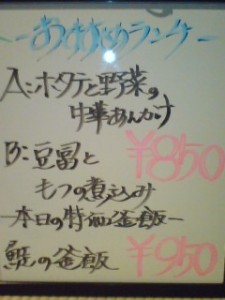 おすすめランチ
A:ホタテと野菜の
中華あんかけ
¥850
B:豆冨と
もつの煮込み
-本日の特価釜飯-
の釜飯 ¥950